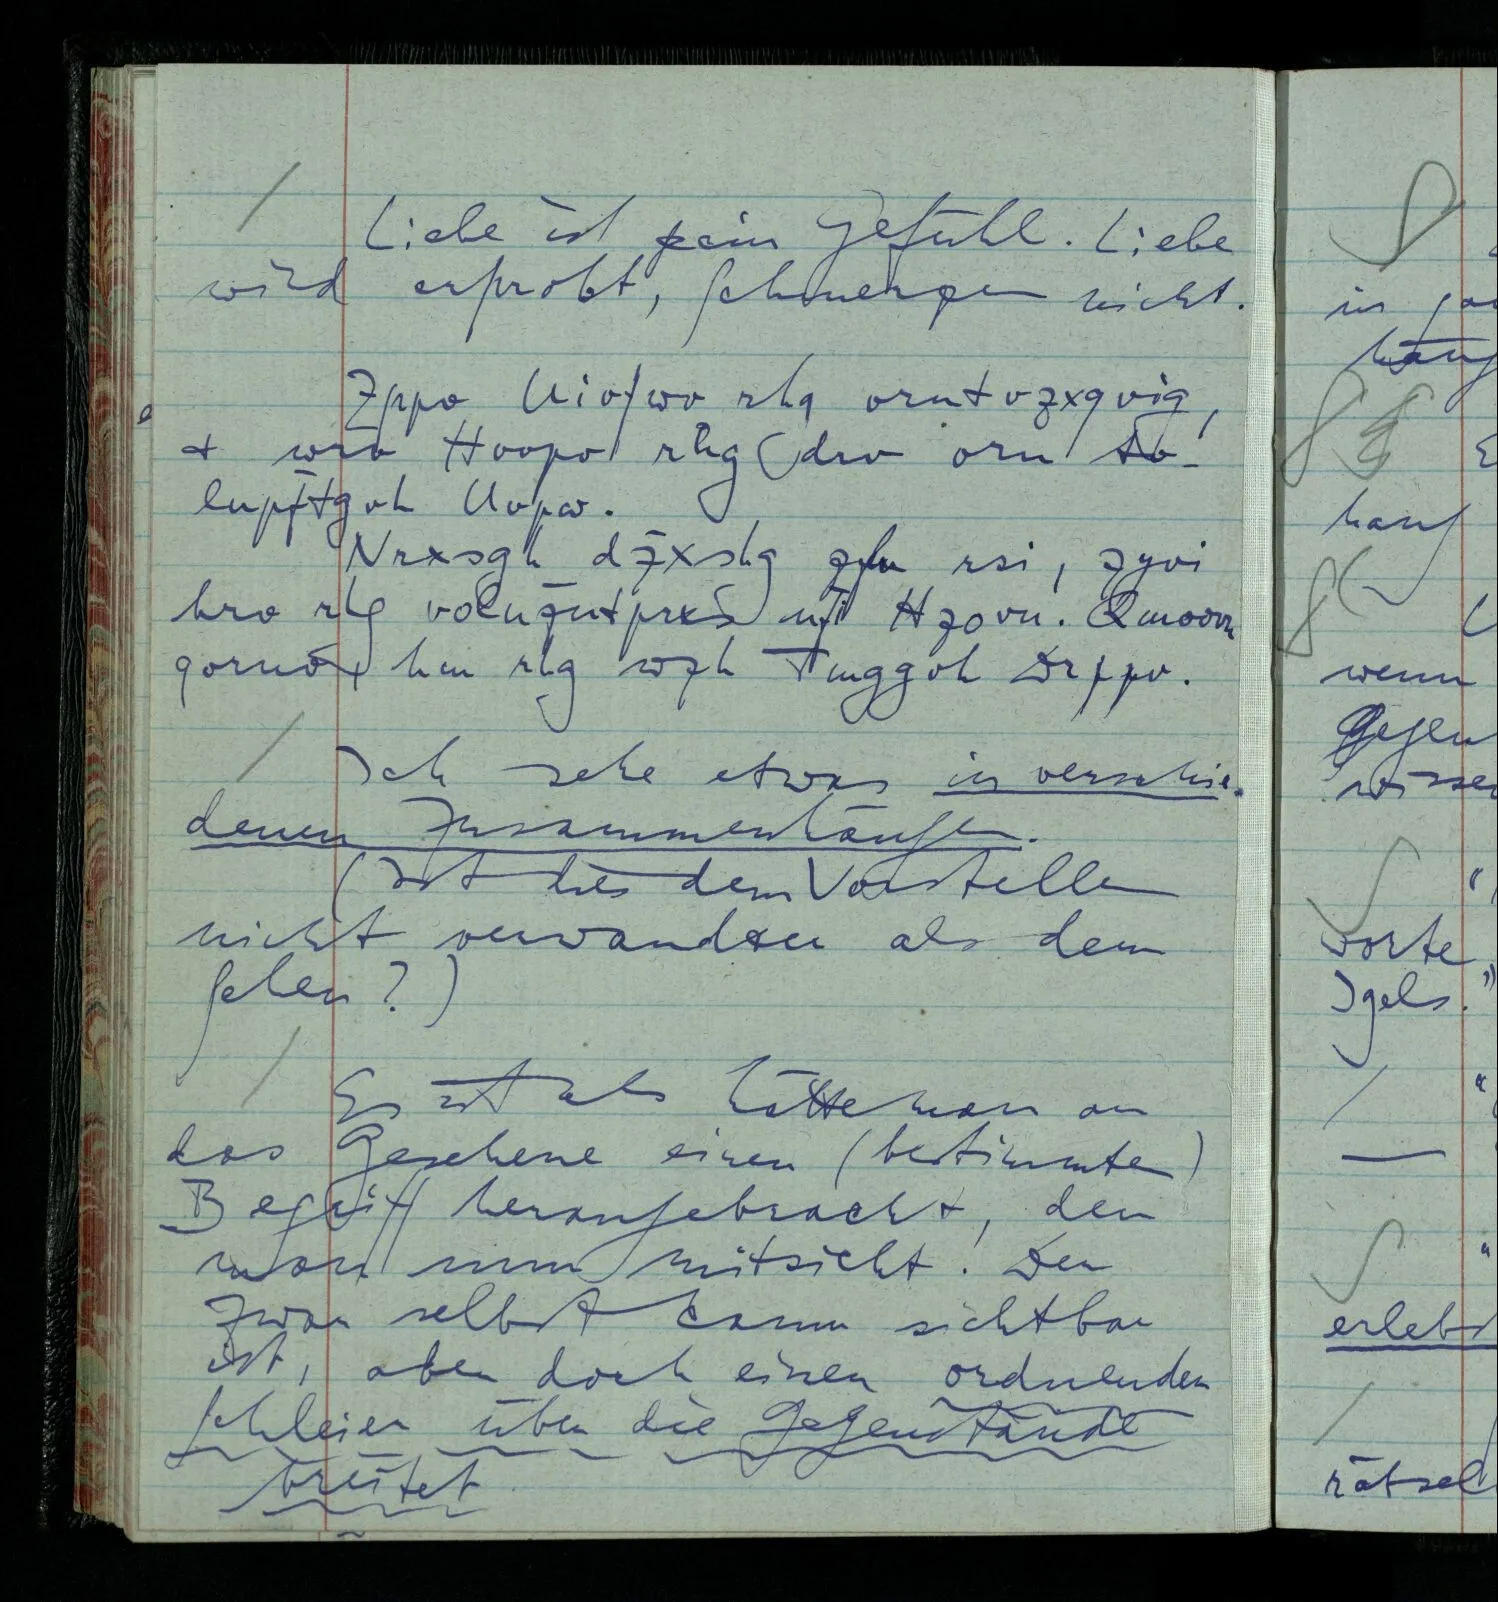 Liebe ist kein Gefühl. Liebe
wird erprobt, Schmerzen nicht.
Zppv Uivfwv rhg vrntvzxqvig,
& wrv Hvvpv rhg drv vrn tv-
lupf̈tgvh Uvpw.
Nrxsgh dz̈xshg zfu rsi, zyvi
hrv rhg voluz̈ntprxs nfi Hzovn. Qmoovn
qvrnv, hm rhg wzh Tmggvh Drppv.
Ich sehe etwas in verschie-
denen Zusammenhängen.
(Ist dies dem Vorstellen
nicht verwandter als dem
Sehen?)
Es ist als hätte man an
das Gesehene einen (bestimmten)
Begriff herangebracht, den
man nun mitsieht. Der
zwar selbst kaum sichtbar
ist, aber doch einen ordnenden
Schleier über die Gegenstände
breitet
hauf
wenn
worte
Igels."
erleb
rätsel